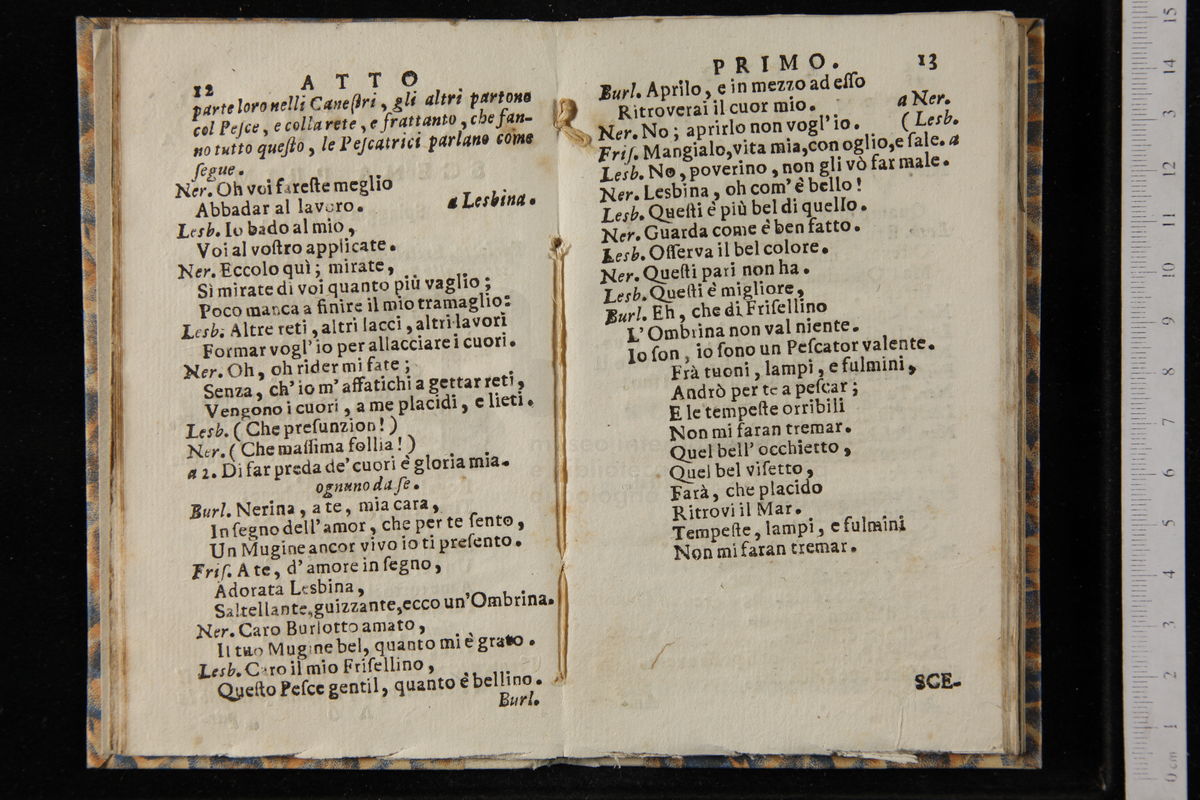 12 ATTO
parte loro nelli Caneſtri, gli altri partono
col Peſce, e colla rete, e frattanto, che fan-
no tutto queſto, le Peſcatrici parlano come
ſegue.
Ner. Oh voi fareſte meglio
Abbadar al lavoro. a Lesbina.
Lesb. Io bado al mio,
Voi al voſtro applicate.
Ner. Eccolo quì; mirate,
Sì mirate di voi quanto più vaglio;
Poco manca a finire il mio tramaglio:
Lesb. Altre reti, altri lacci, altri lavori
Formar vogl' io per allacciare i cuori.
Ner. Oh, oh rider mi fate;
Senza, ch' io m' affatichi a gettar reti,
Vengono i cuori, a me placidi, e lieti.
Lesb. (Che preſunzion!)
Ner. (Che maſſima follia!)
a 2. Di far preda de' cuori è gloria mia.
ognuno da ſe.
Burl. Nerina, a te, mia cara,
In ſegno dell' amor, che per te ſento,
Un Mugine ancor vivo io ti preſento.
Friſ. A te, d' amore in ſegno,
Adorata Lesbina,
Saltellante, guizzante, ecco un' Ombrina.
Ner. Caro Burlotto amato,
Il tuo Mugine bel, quanto mi è grato.
Lesb. Caro il mio Friſellino,
Queſto Peſce gentil, quanto è bellino.
Burl.
PRIMO. 13
Burl. Aprilo, e in mezzo ad eſſo
Ritroverai il cuor mio. a Ner.
Ner. No; aprirlo non vogl' io. (Lesb.
Friſ. Mangialo, vita mia, con oglio, e ſale. a
Lesb. No, poverino, non gli vò far male.
Ner. Lesbina, oh com' è bello!
Lesb. Queſti è più bel di quello.
Ner. Guarda come è ben fatto.
Lesb. Oſſerva il bel colore.
Ner. Queſti pari non ha.
Lesb. Queſti è migliore,
Burl. Eh, che di Friſellino
L' Ombrina non val niente.
Io ſon, io ſono un Peſcator valente.
Frà tuoni, lampi, e fulmini,
Andrò per te a peſcar;
E le tempeſte orribili
Non mi faran tremar.
Quel bell' occhietto,
Quel bel viſetto,
Farà, che placido
Ritrovi il Mar.
Tempeſte, lampi, e fulmini
Non mi faran tremar.
SCE-
0 cm 1 2 3 4 5 6 7 8 9 10 11 12 13 14 15